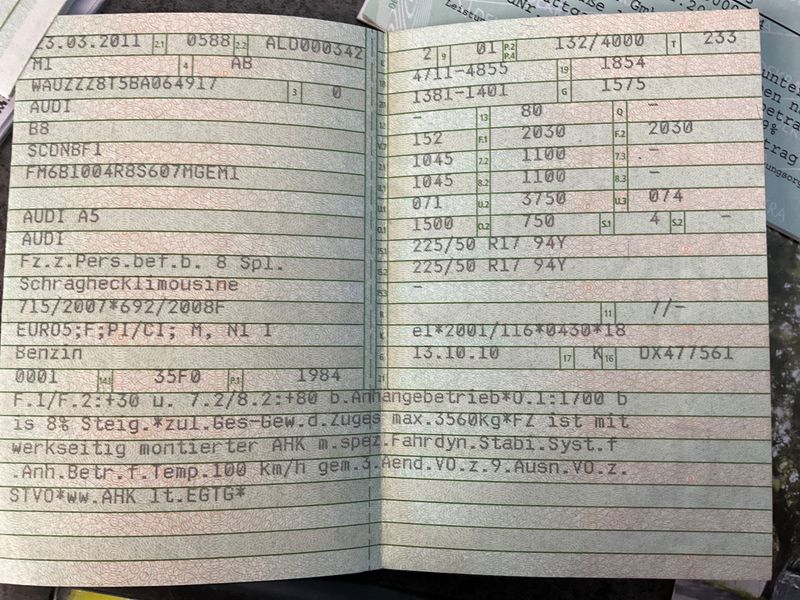 23.03.2011 2.1 0588 2.2 ALD000342
M1 4 AB
WAUZZZ8T5BA064917 3 0
AUDI
B8
SCDNBF1
FM6B1004R8S607MGEM1
AUDI A5
AUDI
Fz.z.Pers.bef.b. 8 Spl.
Schraghecklimousine
715/2007*692/2008F
EURO5;F;PI/CI; M, N1 I
Benzin
0001 14.1 35F0 P.1 1984
L 2 9 01 P.2 P.4 132/4000 T 233
18 4711-4855 19 1854
20 1381-1401 G 1575
12 - 13 80 Q -
V.7 152 F.1 2030 F.2 2030
7.1 1045 7.2 1100 7.3 -
8.1 1045 8.2 1100 8.3 -
U.1 071 U.2 3750 U.3 074
O.1 1500 O.2 750 S.1 4 S.2 -
15.1 225/50 R17 94Y
15.2 225/50 R17 94Y
15.3 -
R 11 7/-
K e1*2001/116*0430*18
6 13.10.10 17 K 16 DX477561
21
F.1/F.2:+30 u. 7.2/8.2:+80 b.Anhangebetrieb*O.1:1700 b
is 8% Steig.*zul.Ges-Gew.d.Zuges max.3560kg*FZ ist mit
werkseitig montierter AHK m.spez.Fahrdyn.Stabi.Syst.f
.Anh.Betr.f.Temp.100 Km/h gem.3.Aend.VO.z.9.Ausn.VO.z.
STVO*ww.AHK lt.EGTG*